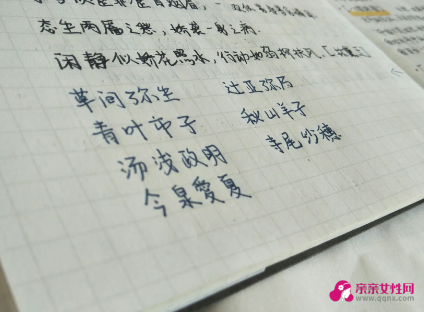 态生两靥之愁，娇袭一身之病
闲静似娇花照水，行动如弱柳扶风。
草间弥生 辻亚弥乃
青叶市子 秋山羊子
汤浅政明 寺尾纱穗
今泉愛夏
亲亲女性网